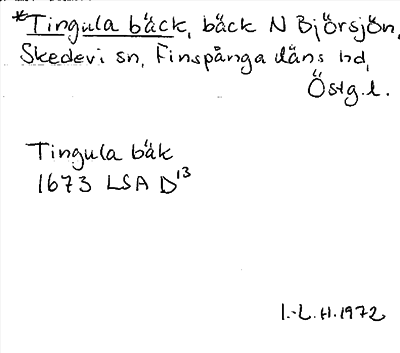 *Tingula bäck, bäck N Björsjön,
Skedevi sn, Finspånga läns hd,
Östg.l.
Tingula bäk
1673 LSA D13
I.-L.H.1972